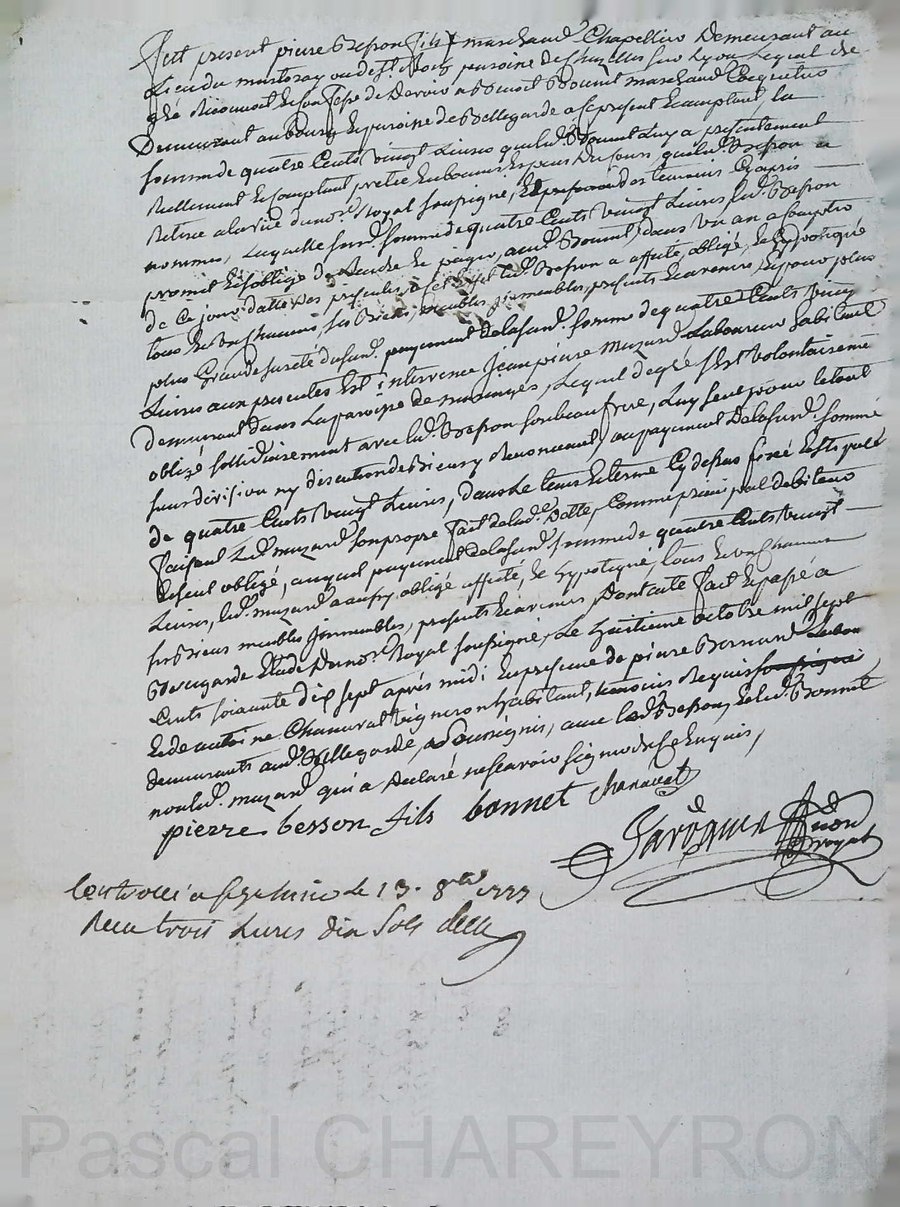 Fut present pierre Besson fils marchand Chapellier Demeurant au
Lieu du martoray ou de st. paroisse de Chazelles sur Lyon Lequel de
gré Reconnoit Et Confesse De devoir a Benoit Bonnet marchand Coquetier
Demeurant au Bourg Et paroisse de Bellegarde a ce present Et acceptant, la
somme de quatre Cents vingt Livres que led. Bonnet Luy a presentement
Reellement Et Comptant pretée En bonnes Especes Du Cours, que led. Besson a
Retirée a la vüe du no.re Royal soussigné, Et des temoins Cy apres
nommés, Laquelle susd. somme de quatre Cents vingt Livres led. Besson
promet Et s'oblige de Rendre Et payer, aud. Bonnet, dans un an a Compter
de Ce jour datte Des presentes, a Cet Effet led. Besson a affecté, obligé, Et hypotequé
tous Et un Chacuns, ses Biens, meubles jmmeubles, presents Et avenirs, Et pour plus
plus Grande sureté du susd. payement De la susd. somme de quatre Cents vingt
Livres aux presentes Est intervenu Jean pierre Muzard Laboureur habitant
demeurant dans La paroisse de, Lequel de gré s'Est volontairement
obligé sollidairement avec led. Besson son beau frere, Luy seul pour le tout
sans division ny discution de Biens y Renonceant, au payement De la susd. somme
de quatre Cents vingt Livres, dans Le tems Et terme Cy dessus fixé Et stipulé
faisant Led. muzard son propre fait de lad.e Dette, Comme principal debiteur
Et seul obligé, auquel payement de la susd. somme de quatre Cents vingt
Livres, led. muzard a aussy obligé affecté, Et hypotequé, tous Et un Chacuns
ses Biens meubles jmmeubles, presents Et avenirs, Dont acte fait Et passé a
Bellegarde Etude Du no.re Royal soussigné, Le huitieme octobre mil sept
Cents soixante dix sept après midi En presence de pierre Bernard
Et de antoine Chanavat Vigneron habitant, temoins Requis
demeurants aud. Bellegarde, soussignés, avec led. Besson, Et led. Bonnet
non led. muzard qui a Declaré ne sçavoir signer de ce Enquis,
pierre besson fils bonnet chanavat
royal
Controllé a le 13. 8bre 1777
Recu trois Livres dix sols
Pascal CHAREYRON